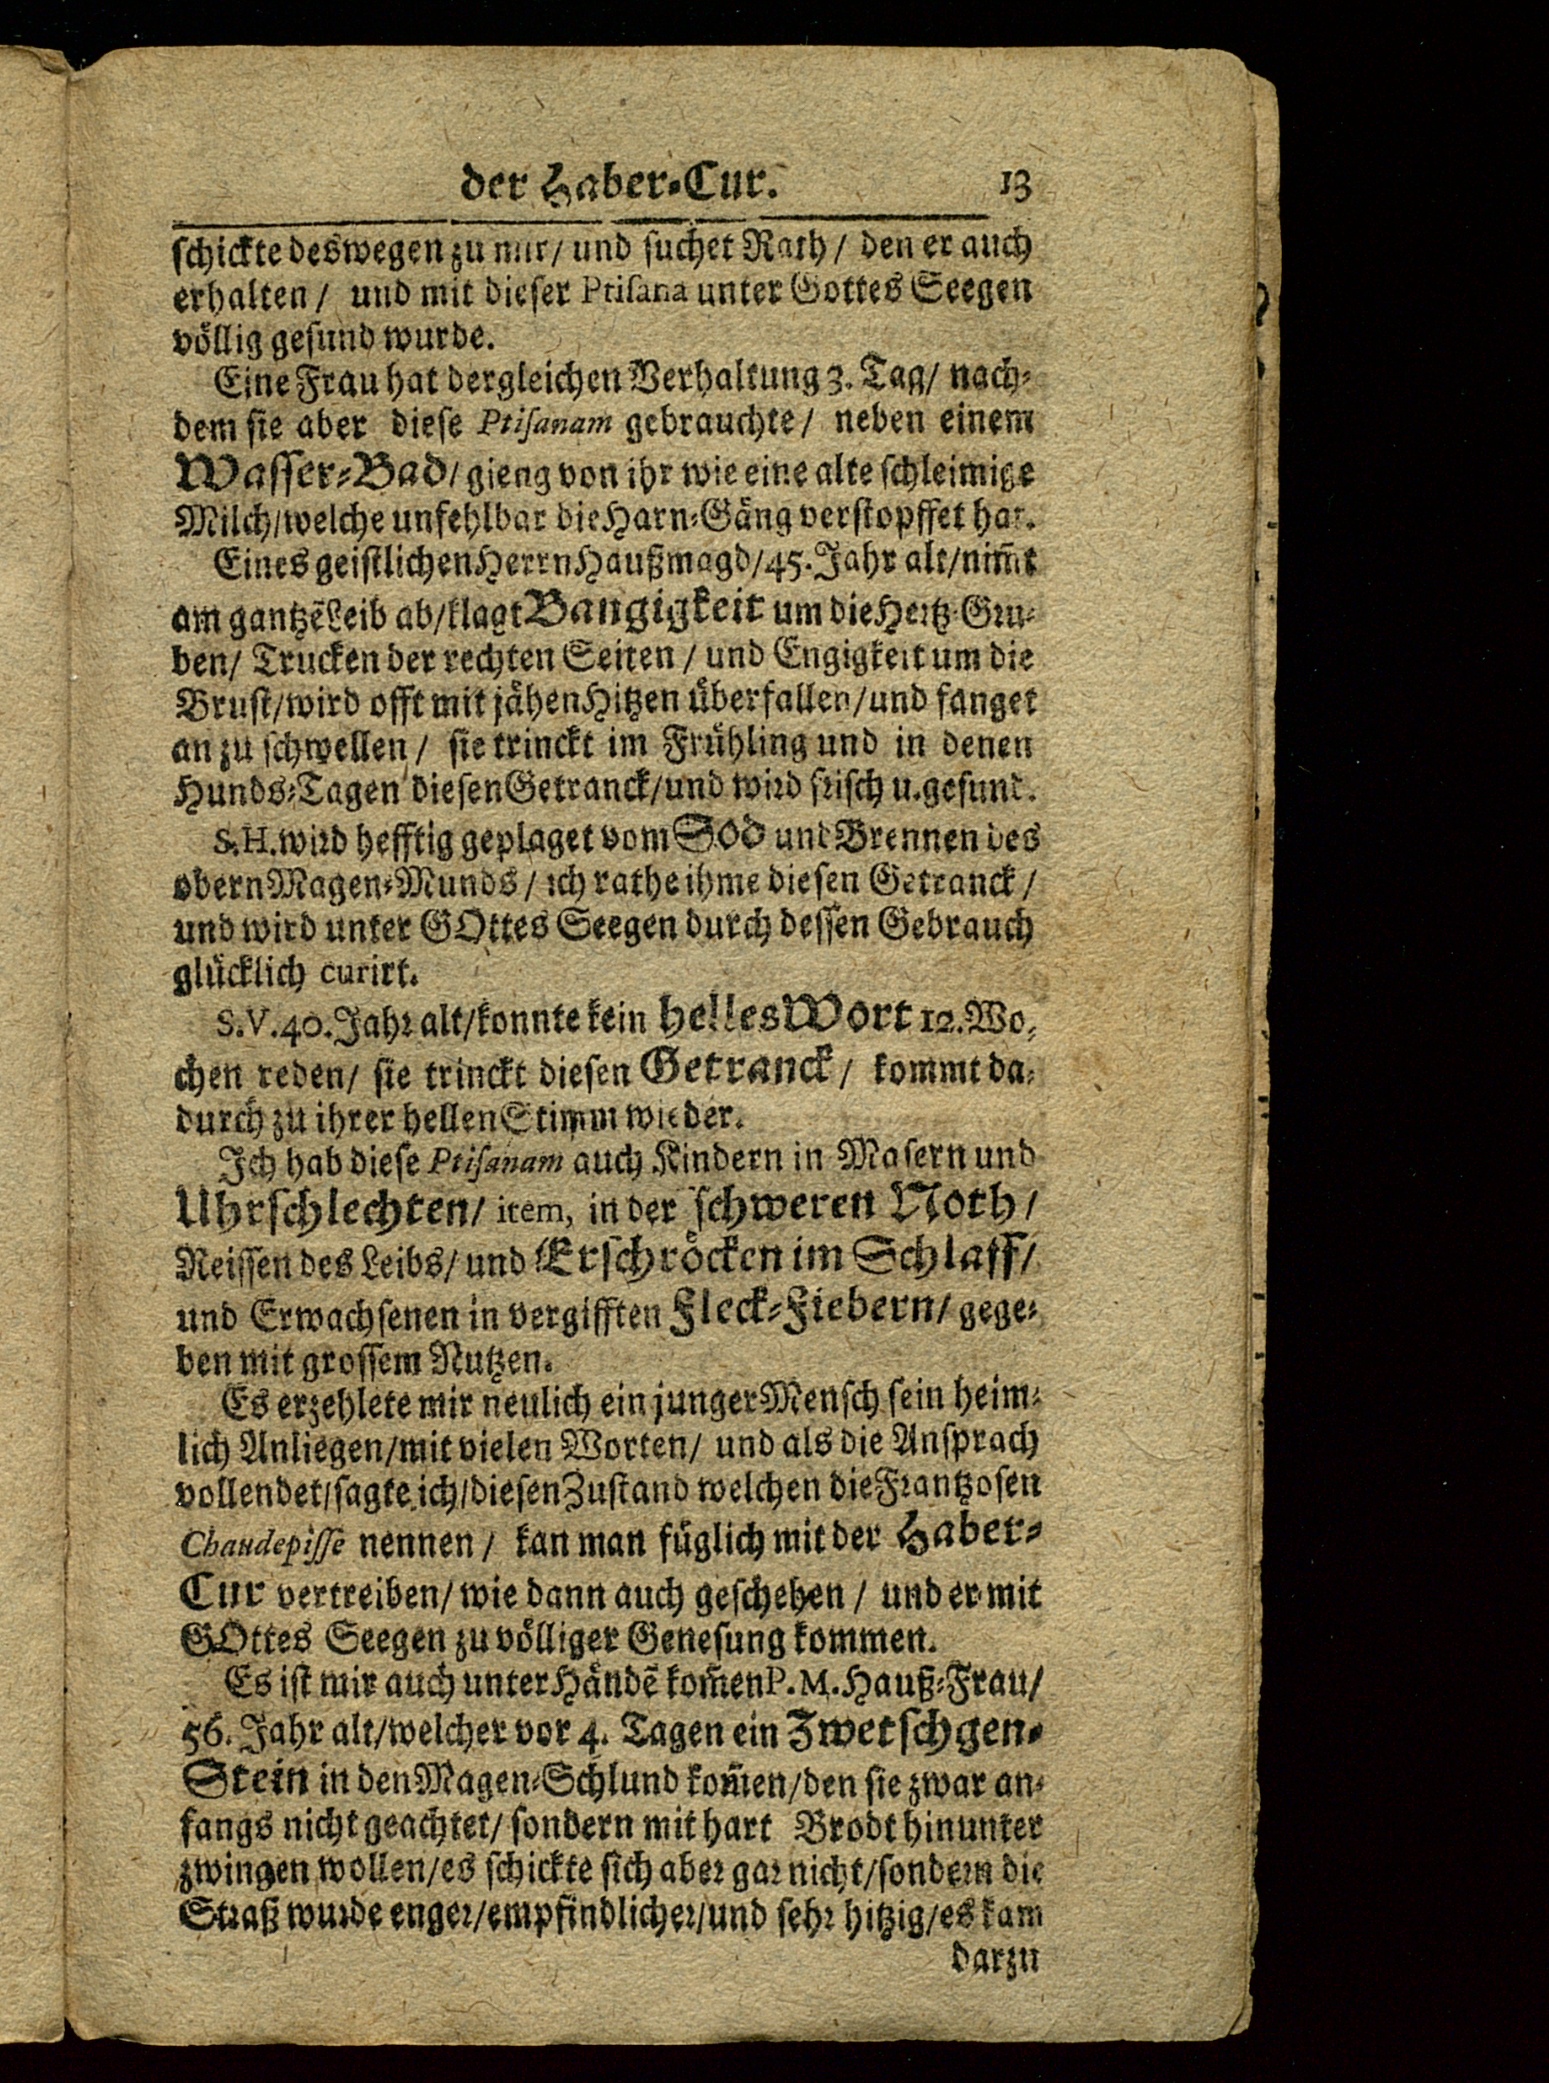 der Haber-Cur. 13
schickte deswegen zu mir/ und suchet Rath/ den er auch
erhalten/ und mit dieser Ptisana unter Gottes Seegen
völlig gesund wurde.
Eine Frau hat dergleichen Verhaltung 3. Tag/ nach-
dem sie aber diese Ptisanam gebrauchte/ neben einem
Wasser-Bad/ gieng von ihr wie eine alte schleimige
Milch/welche unfehlbar die Harn-Gäng verstopffet hat.
Eines geistlichen Herrn Haußmagd/45. Jahr alt/nim̃t
am gantzẽ Leib ab/klagt Bangigkeit um die Hertz-Gru-
ben/ Trucken der rechten Seiten/ und Engigkeit um die
Brust/wird offt mit jähen Hitzen überfallen/und fanget
an zu schwellen/ sie trinckt im Frühling und in denen
Hunds-Tagen diesen Getranck/und wird frisch u. gesund.
S. H. wird hefftig geplaget vom Sod und Brennen des
obern Magen-Munds/ ich rathe ihme diesen Getranck/
und wird unter GOttes Seegen durch dessen Gebrauch
glücklich curirt.
S. V. 40. Jahr alt/konnte kein helles Wort 12. Wo-
chen reden/ sie trinckt diesen Getranck/ kommt da-
durch zu ihrer hellen Stimm wieder.
Ich hab diese Ptisanam auch Kindern in Masern und
Uhrschlechten/ item, in der schweren Noth/
Reissen des Leibs/ und Erschröcken im Schlaff/
und Erwachsenen in vergifften Fleck-Fiebern/ gege-
ben mit grossem Nutzen.
Es erzehlete mir neulich ein junger Mensch sein heim-
lich Anliegen/mit vielen Worten/ und als die Ansprach
vollendet/sagte ich/diesen Zustand welchen die Frantzosen
Chaudepisse nennen/ kan man füglich mit der Haber-
Cur vertreiben/ wie dann auch geschehen/ und er mit
GOttes Seegen zu völliger Genesung kommen.
Es ist mir auch unter Händẽ kom̃en P. M. Hauß-Frau/
56. Jahr alt/welcher vor 4. Tagen ein Zwetschgen-
Stein in den Magen-Schlund kom̃en/den sie zwar an-
fangs nicht geachtet/ sondern mit hart Brodt hinunter
zwingen wollen/es schickte sich aber gar nicht/sondern die
Straß wurde enger/empfindlicher/und sehr hitzig/es kam
darzu